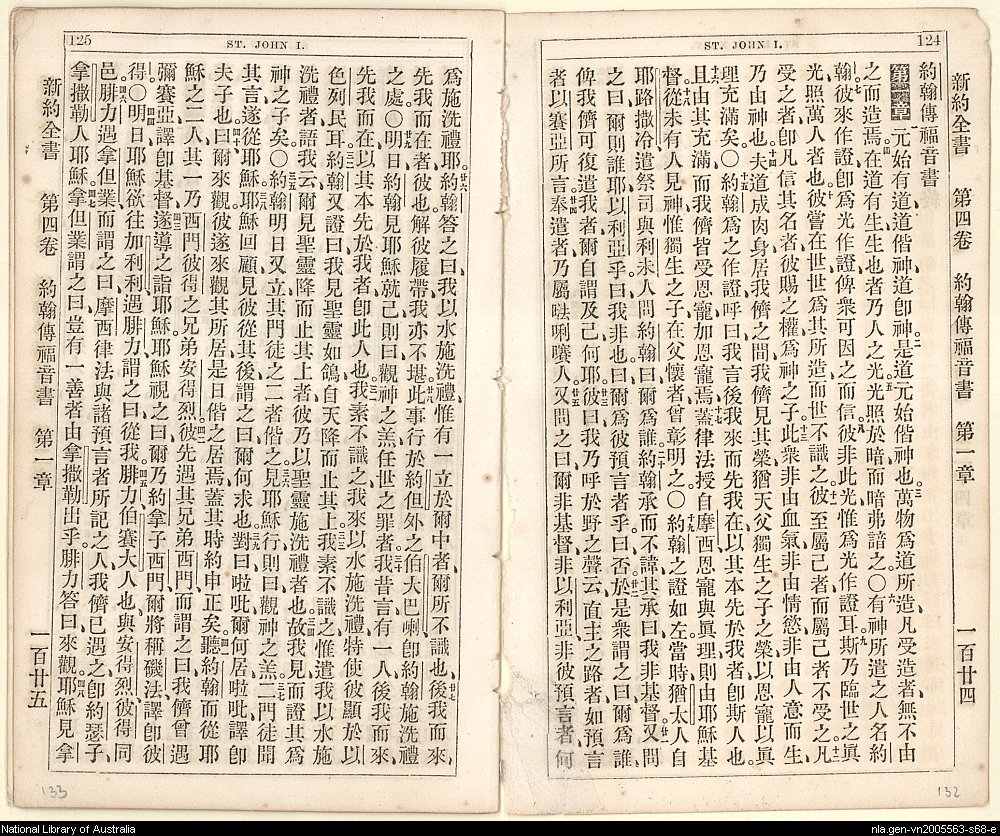 124
ST. JOHN I.
新約全書 第四卷 約翰傳福音書 第一章 一百廿四
約翰傳福音書
第一章 元始有道、道偕神、道卽神。二是道元始偕神也。三萬物爲道所造、凡受造者、無不由
之而造焉。四在道有生、生也者、乃人之光、五光照於暗、而暗弗諳之。○六有神所遣之人名約
翰、七彼來作證、卽爲光作證、俾衆可因之而信。八彼非此光、惟爲光作證耳。九斯乃臨世之眞
光、照萬人者也。十彼嘗在世、世爲其所造、而世不識之。十一彼至屬己者、而屬己者不受之。十二凡
受之者、卽凡信其名者、彼賜之權爲神之子。十三此衆非由血氣、非由情慾、非由人意而生、
乃由神也。十四夫道成肉身、居我儕之間、我儕見其榮、猶天父獨生之子之榮、以恩寵以眞
理充滿矣。○十五約翰爲之作證、呼曰、我言後我來而先我在、以其本先於我者、卽斯人也。
十六且由其充滿、而我儕皆受恩寵加恩寵焉。十七蓋律法授自摩西、恩寵與眞理、則由耶穌基
督。十八從未有人見神、惟獨生之子、在父懷者、曾彰明之。○十九約翰之證如左、當時猶太人自
耶路撒冷遣祭司與利未人問約翰曰、爾爲誰。二十約翰承而不諱、其承曰、我非基督。廿一又問
之曰、爾則誰耶、以利亞乎、曰、我非也、曰、爾爲彼預言者乎、曰、否。廿二於是衆謂之曰、爾爲誰、
俾我儕可復遣我者、爾自謂及己何耶。廿三彼曰、我乃呼於野之聲云、直主之路者、如預言
者以賽亞所言。廿四奉遣者、乃屬𠵽唎㘓人。廿五又問之曰、爾非基督、非以利亞、非彼預言者、何
125
ST. JOHN I.
爲施洗禮耶。廿六約翰答之曰、我以水施洗禮、惟有一立於爾中者、爾所不識也、廿七後我而來、
先我而在者、彼也、解彼履帶、我亦不堪。廿八此事行於約但外之伯大巴喇、卽約翰施洗禮
之處。○廿九明日約翰見耶穌就己、則曰、觀神之羔、任世之罪者。三十我昔言有一人後我而來、
先我而在、以其本先於我者、卽此人也。三一我素不識之、我來以水施洗禮、特使彼顯於以
色列民耳。三二約翰又證曰、我見聖靈如鴿、自天降而止其上。三三我素不識之、惟遣我以水施
洗禮者、語我云、爾見聖靈降而止其上者、彼乃以聖靈施洗禮者也。三四故我見而證其爲
神之子矣。○三五約翰明日又立、其門徒之二者偕之。三六見耶穌行、則曰、觀神之羔。三七二門徒聞
其言、遂從耶穌。三八耶穌回顧見彼從其後、謂之曰、爾何求也。三九對曰、啦吡、爾何居、啦吡譯卽
夫子也。四十曰、爾來觀、彼遂來觀其所居、是日偕之居焉、蓋其時約申正矣。四一聽約翰而從耶
穌之二人、其一乃西門彼得之兄弟安得烈。四二彼先遇其兄弟西門、而謂之曰、我儕曾遇
彌賽亞、譯卽基督。四三遂導之詣耶穌、耶穌視之曰、爾乃約拿子西門、爾將稱磯法、譯卽彼
得。○四四明日耶穌欲往加利利、遇腓力、謂之曰、從我。四五腓力、伯賽大人也、與安得烈彼得同
邑。四六腓力遇拿但業、而謂之曰、摩西律法與諸預言者所記之人、我儕已遇之、卽約瑟子、
拿撒勒人耶穌。四七拿但業謂之曰、豈有一善者由拿撒勒出乎、腓力答曰、來觀。四八耶穌見拿
新約全書 第四卷 約翰傳福音書 第一章 一百廿五
133
132
National Library of Australia
nla.gen-vn2005563-s68-e